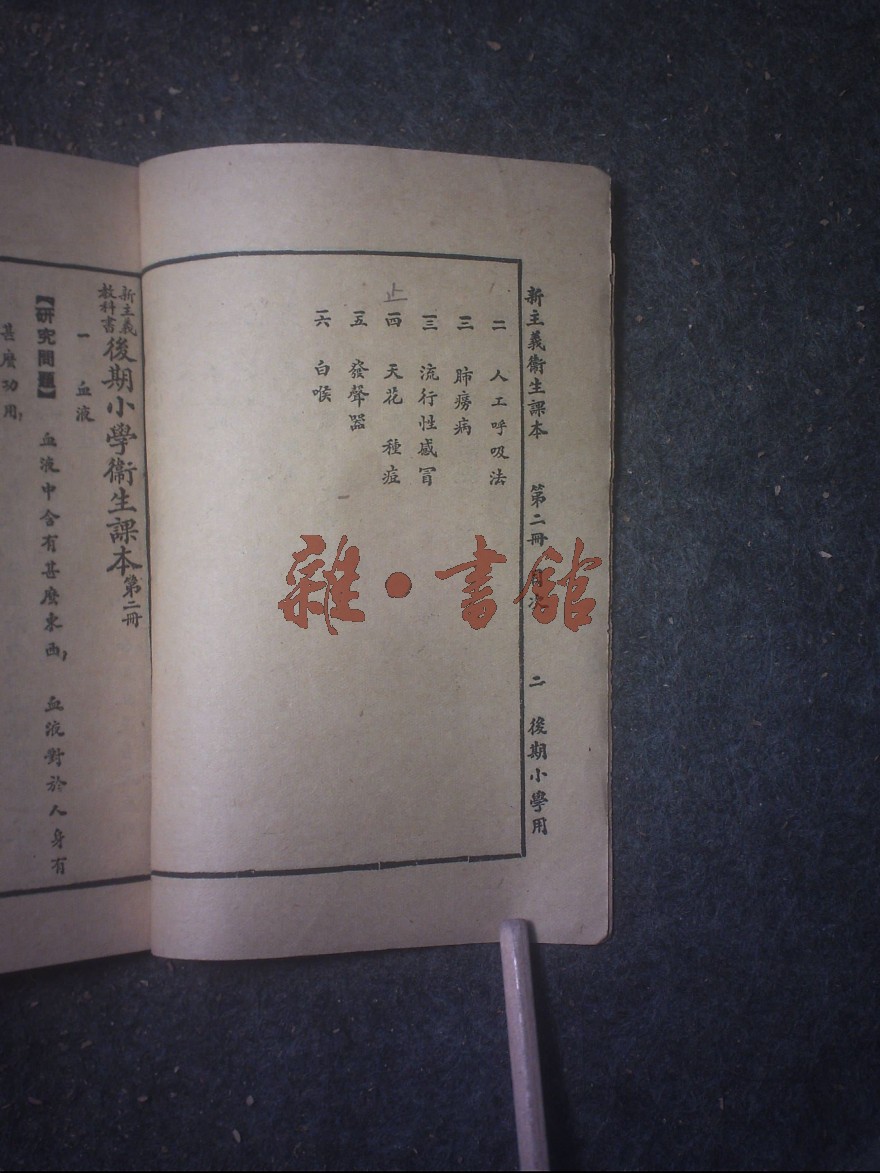 新主義衞生課本 第二冊 目次 二 後期小學用
一一 人工呼吸法
一二 肺癆病
一三 流行性感冒
止
一四 天花 種痘
一五 發聲器
一六 白喉
新主義
教科書
後期小學衞生課本第二冊
一 血液
【研究問題】 血液中含有甚麼東西, 血液對於人身有
甚麼功用,
雜•書館